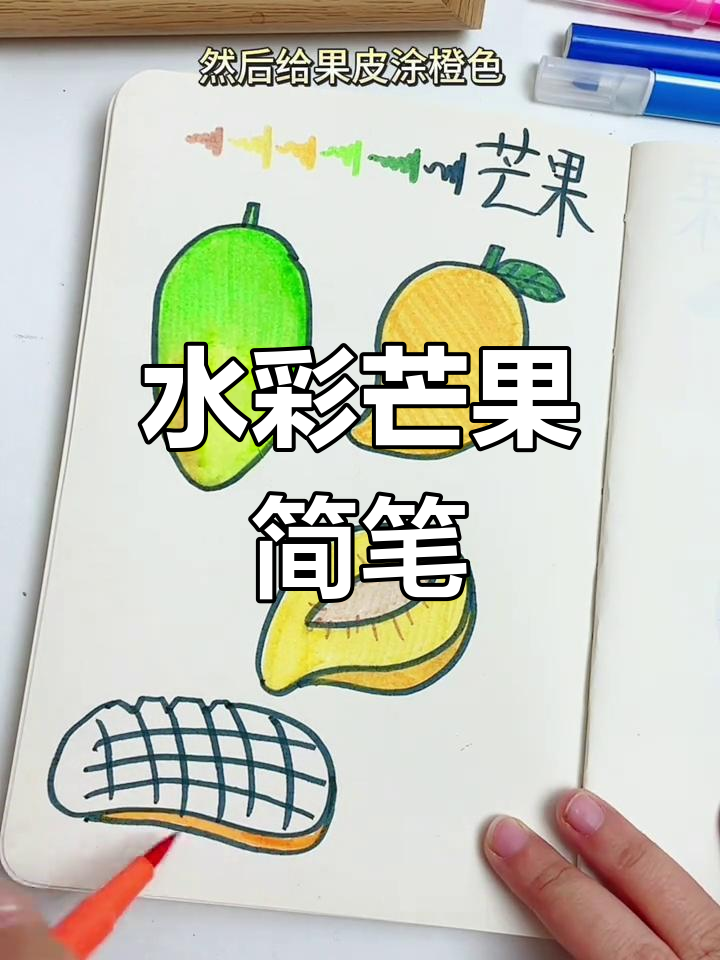 然后给果皮涂橙色
芒果
水彩芒果
简笔